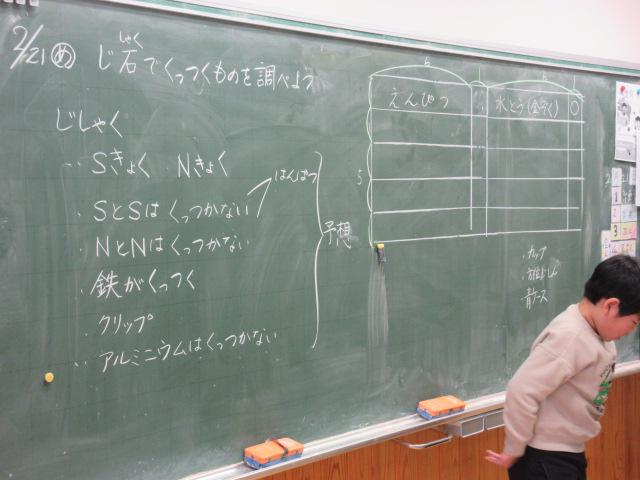 2/21 め じ石でくっつくものを調べよう
しゃく
じしゃく
・・Sきょく Nきょく
・SとSはくっつかない
はんぱつ
・NとNはくっつかない
・鉄がくっつく
・クリップ
・・アルミニウムはくっつかない
予想
6
えんぴつ
水とう(金ぞく)
○
5
・カップ